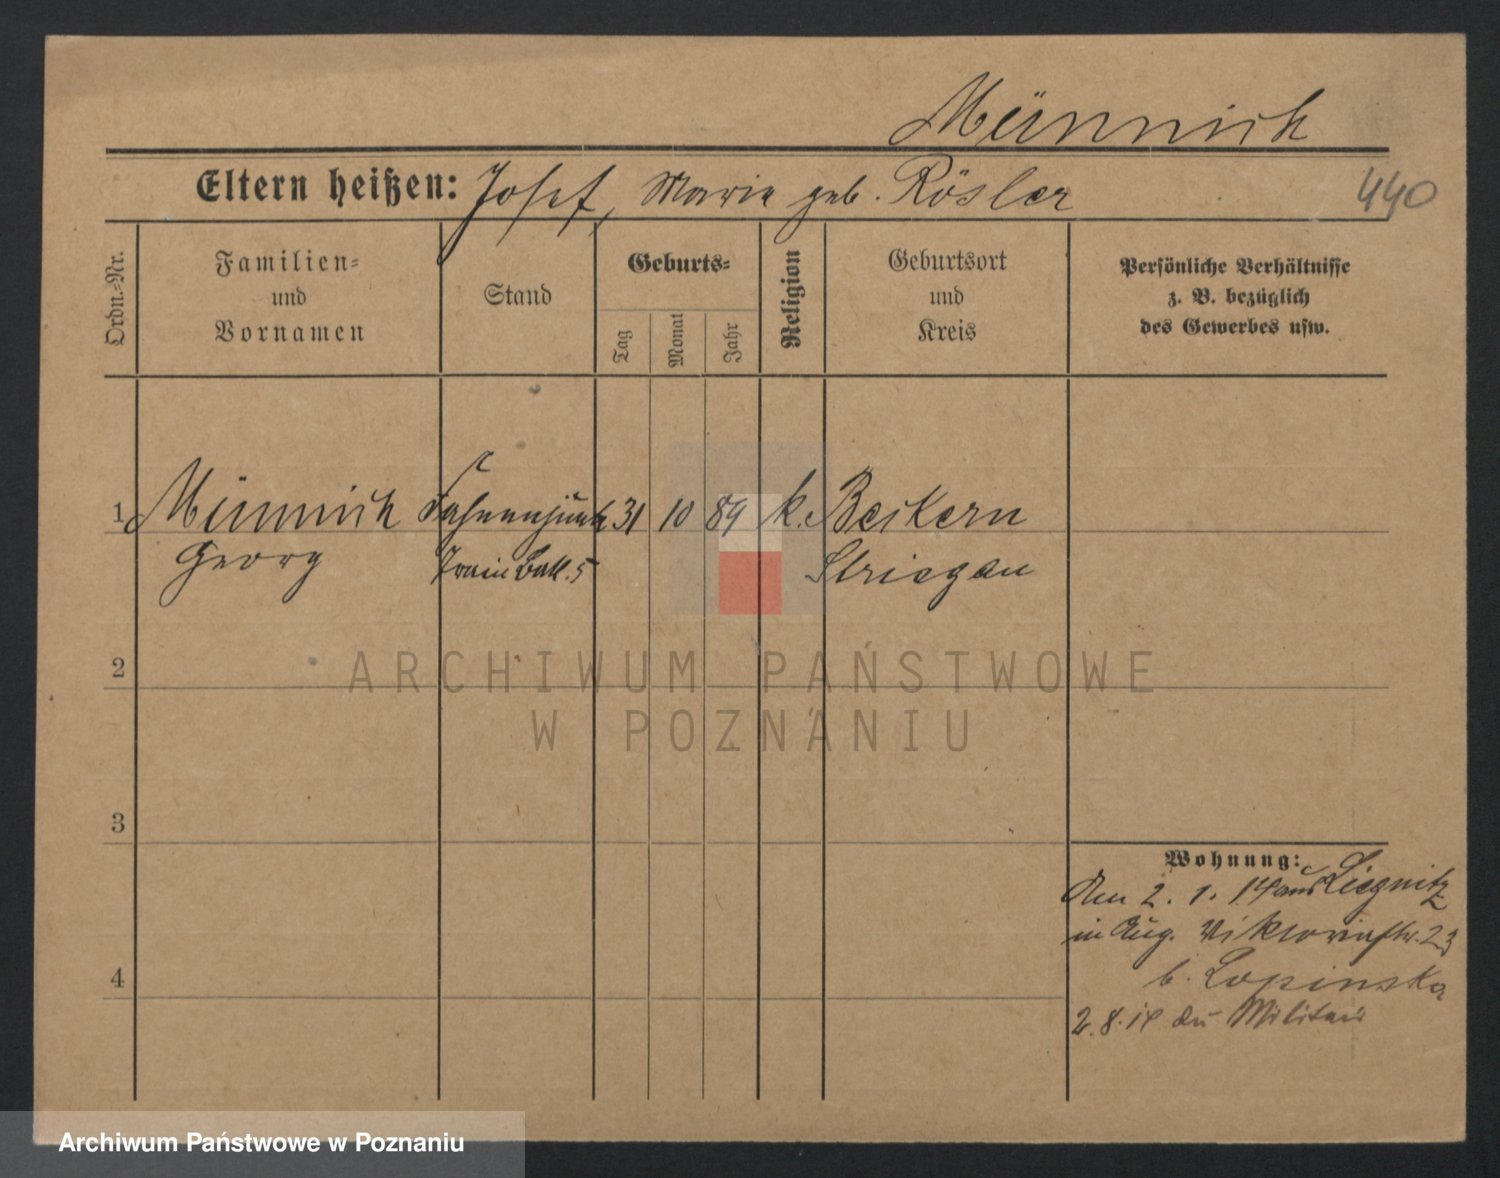 Münnich
Eltern heißen: Josef, Maria geb. Rösler
440
Ordn.-Nr.
Familien-
und
Vornamen
Stand
Geburts-
Tag
Monat
Jahr
Religion
Geburtsort
und
Kreis
Persönliche Verhältnisse
z. B. bezüglich
des Gewerbes usw.
1 Münnich Fahnenjunk 31 10 89 k. Beckern
Georg Train Batl. 5 Striegau
ARCHIWUM PAŃSTWOWE
W POZNANIU
2
3
4
Wohnung:
Am 2. 1. 14 aus Liegnitz
in Aug. Viktoriastr. 23
b. Lopinska
2. 8. 14 zu Militär
Archiwum Państwowe w Poznaniu